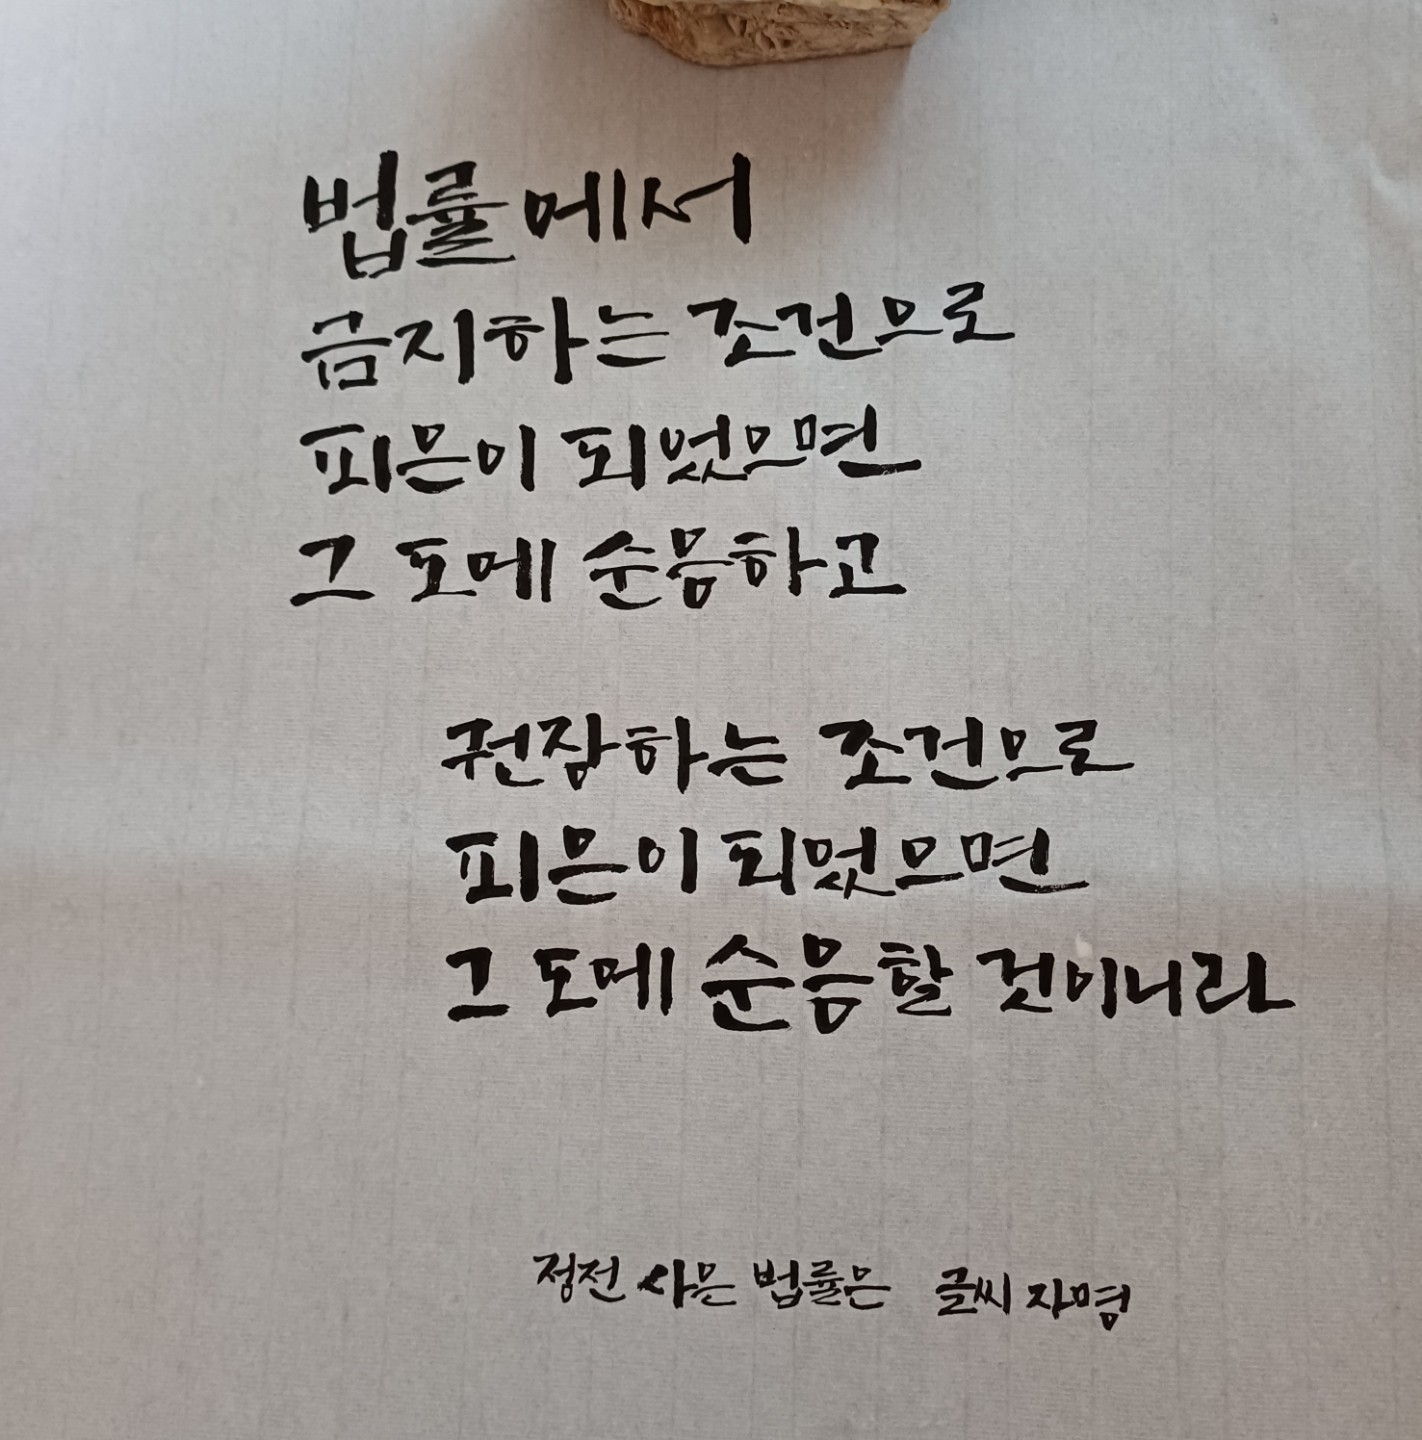 법률에서
금지하는 조건으로
피은이 되었으면
그 도에 순응하고
권장하는 조건으로
피은이 되었으면
그 도에 순응할 것이니라
정전 사은 법률은 글씨 자명